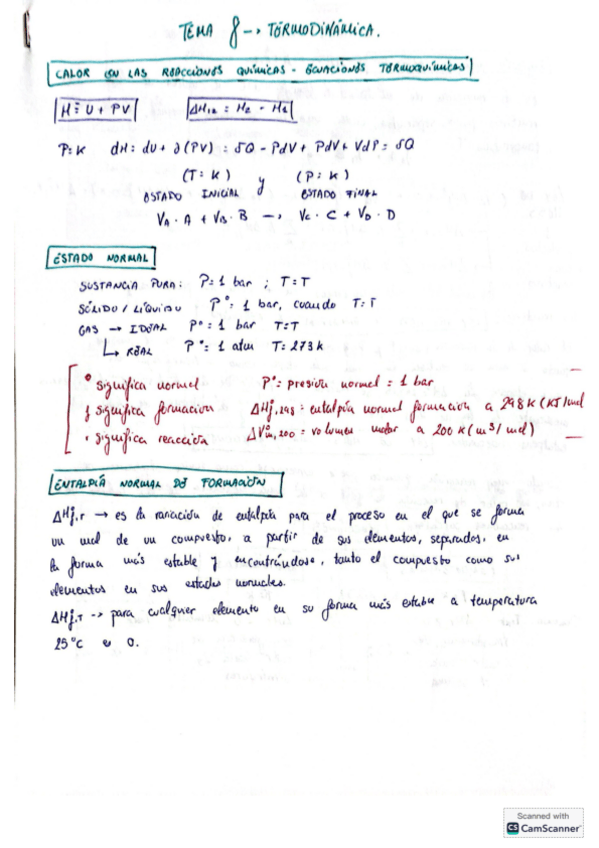 TEMA 8 -> TERMODINÁMICA.
CALOR EN LAS REACCIONES QUÍMICAS - ECUACIONES TERMOQUÍMICAS
H = U + PV    ΔH₁₂ = H₂ - H₁
P=K    dH = dU + d(PV) = δQ - PdV + PdV + VdP = δQ
(T = K)    (P = K)
ESTADO INICIAL y ESTADO FINAL
VA · A + VB · B -> VC · C + VD · D
ESTADO NORMAL
SUSTANCIA PURA: P=1 bar ; T=T
SÓLIDO / LÍQUIDO P° = 1 bar, cuando T=T
GAS -> IDEAL P° = 1 bar T=T
↳ REAL P° = 1 atm T=273K
° significa normal    P° = presión normal = 1 bar
f significa formación    ΔH°f,298 = entalpía normal formación a 298K (KJ/mol
r significa reacción    ΔV°m,200 = volumen molar a 200K (m³/mol)
ENTALPÍA NORMAL DE FORMACIÓN
ΔH°f,T -> es la variación de entalpía para el proceso en el que se forma
un mol de un compuesto, a partir de sus elementos, separados, en
la forma más estable y encontrándose, tanto el compuesto como sus
elementos en sus estados normales.
ΔH°f,T -> para cualquier elemento en su forma más estable a temperatura
25°C es 0.
Scanned with
CS CamScanner